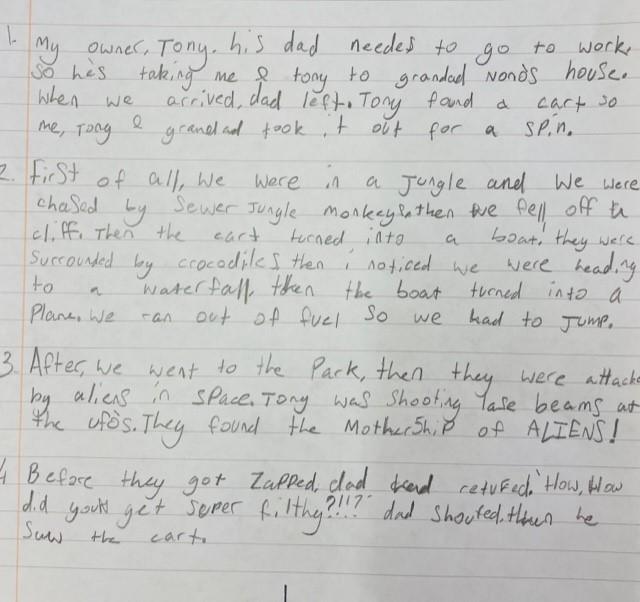 1. My owner, Tony. his dad needed to go to work,
so he's taking me & tony to grandad Nono's house.
When we arrived, dad left. Tony found a cart so
me, Tony & grandad took it out for a spin.
2. First of all, we were in a Jungle and We were
chased by Sewer Jungle monkeys, then we fell off a
cliff. Then the cart turned into a boat, they were
surrounded by crocodiles then i noticed we were heading
to a waterfall, then the boat turned into a
Plane. We ran out of fuel so we had to Jump.
3. After, we went to the Park, then they were attacke
by aliens in space. Tony was shooting lase beams at
the ufo's. They found the Mothership of ALIENS!
4 Before they got Zapped, dad retured. "How, How
did you get super filthy?!!?" dad shouted. then he
Saw the cart.